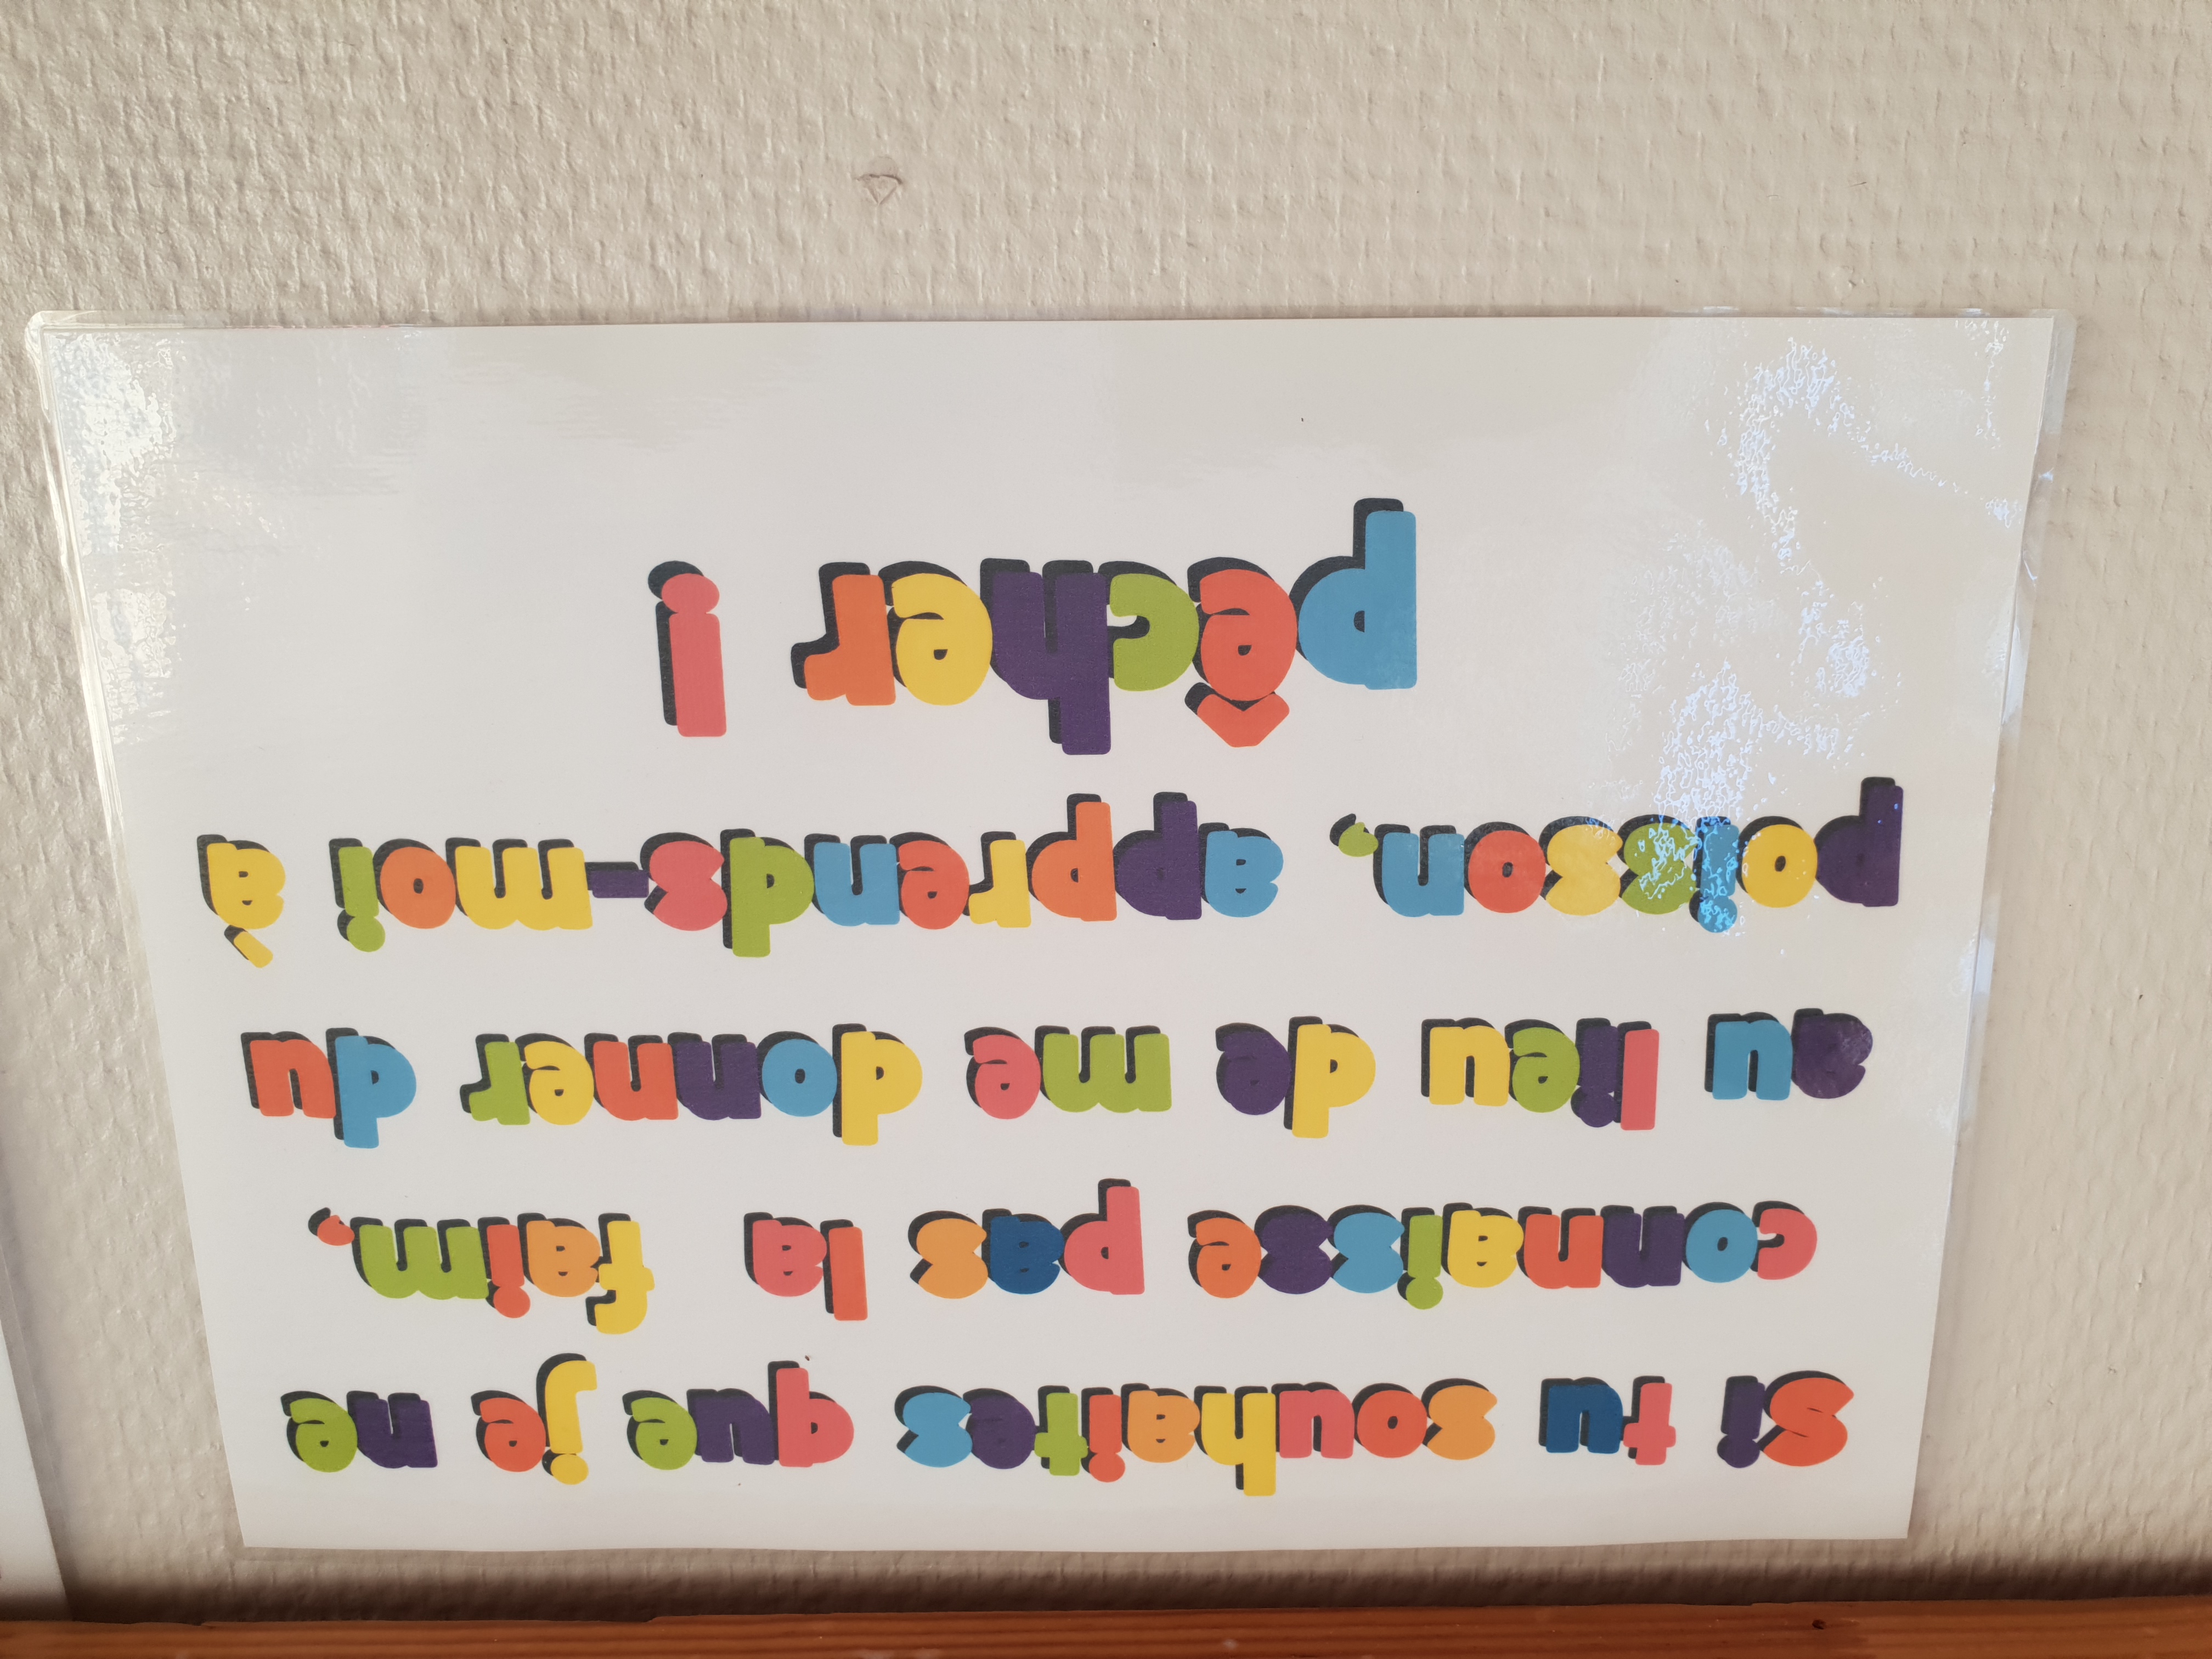 Si tu souhaites que je ne
connaisse pas la faim,
au lieu de me donner du
poisson, apprends-moi à
pêcher !